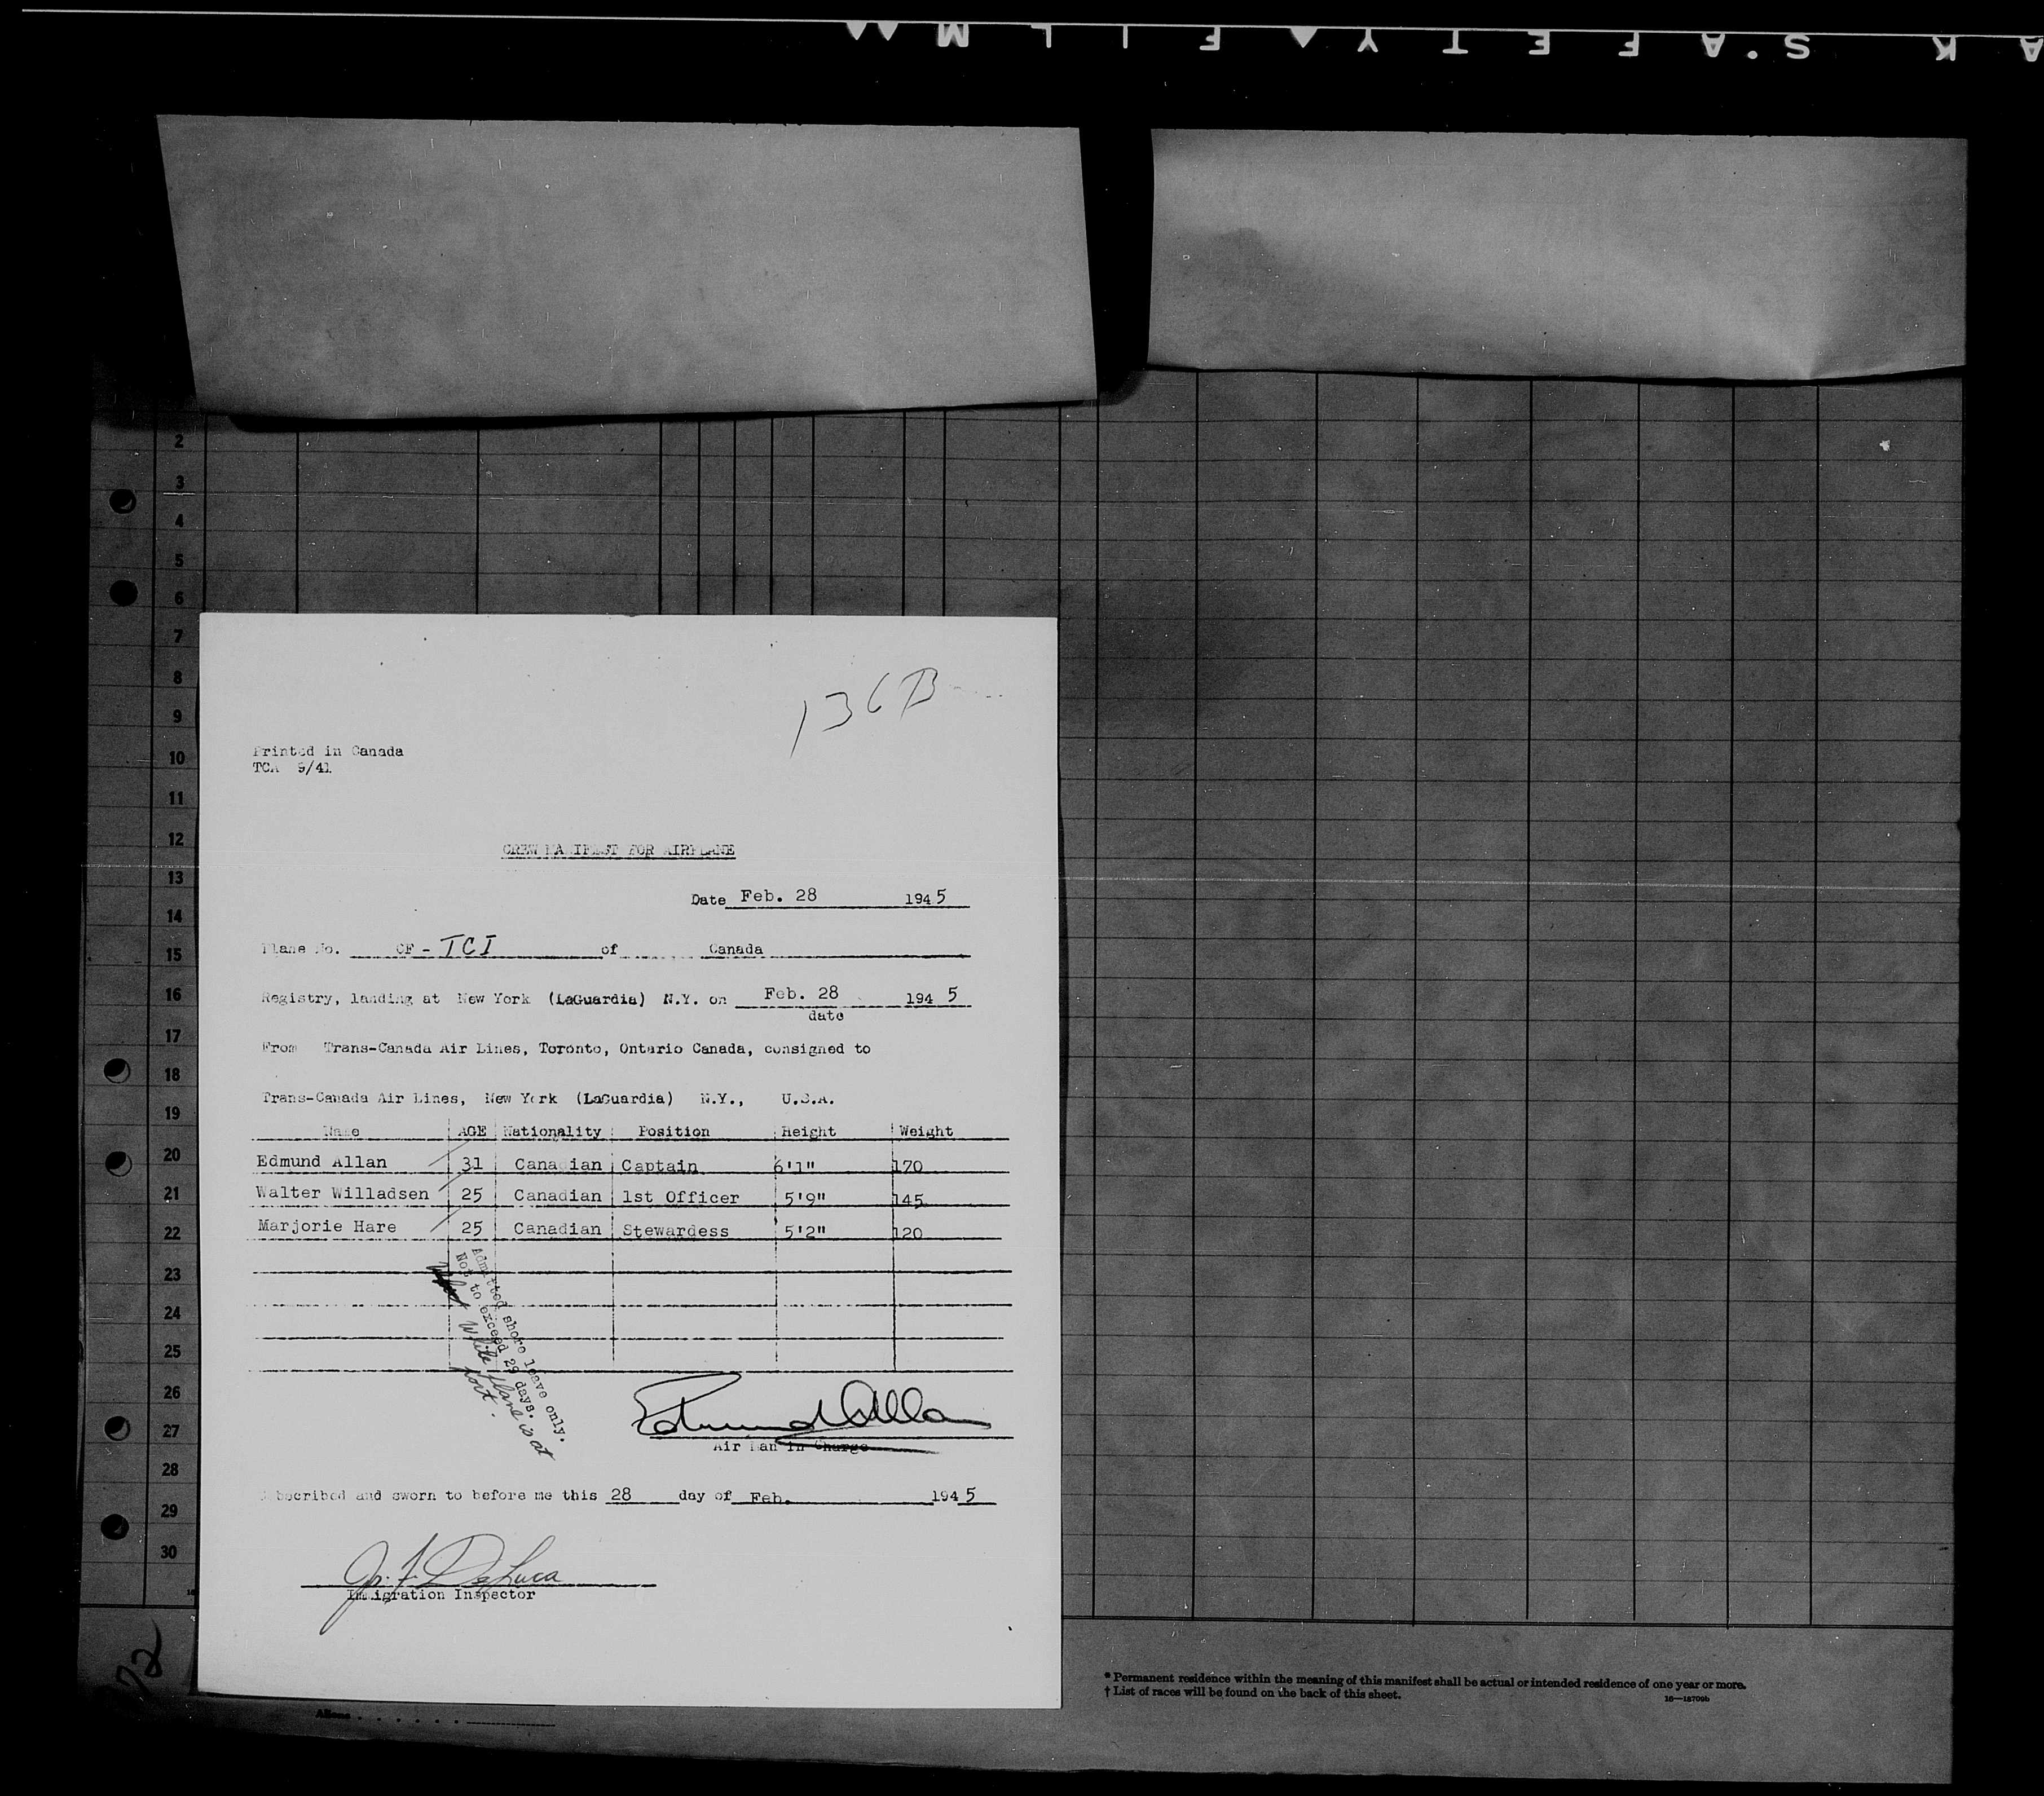 K S·A F E T Y ▲ F I L M
2
3
4
5
6
7
8
9
10
11
12
13
14
15
16
17
18
19
20
21
22
23
24
25
26
27
28
29
30
136B
Printed in Canada
TCA 9/41
CREW MANIFEST FOR AIRPLANE
Date Feb. 28 1945
Plane No. CF-TCI of Canada
Registry, landing at New York (LaGuardia) N.Y. on Feb. 28 1945
date
From Trans-Canada Air Lines, Toronto, Ontario Canada, consigned to
Trans-Canada Air Lines, New York (LaGuardia) N.Y., U.S.A.
Name AGE Nationality Position Height Weight
Edmund Allan 31 Canadian Captain 6'1" 170
Walter Willadsen 25 Canadian 1st Officer 5'9" 145
Marjorie Hare 25 Canadian Stewardess 5'2" 120
Admitted shore leave only.
Not to exceed 29 days.
While plane is at
port.
Edmund Allan
Air Man in Charge
Subscribed and sworn to before me this 28 day of Feb. 1945
Jr. F. DeLuca
Immigration Inspector
72
Aliens
* Permanent residence within the meaning of this manifest shall be actual or intended residence of one year or more.
† List of races will be found on the back of this sheet.
16—18709b